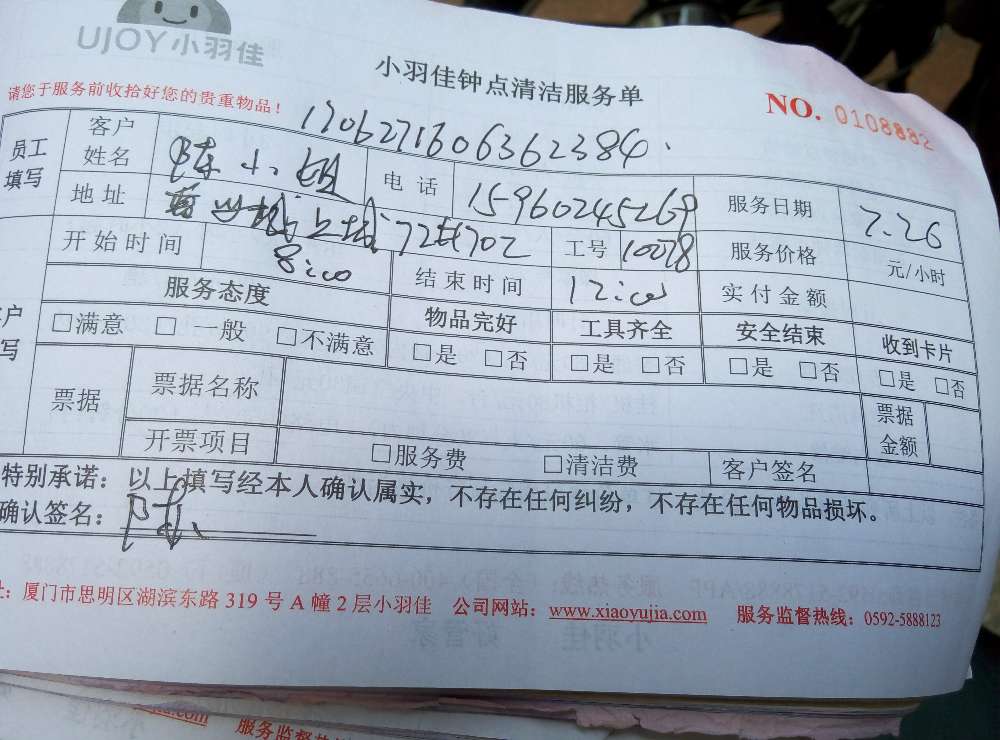 UJOY小羽佳
小羽佳钟点清洁服务单
请您于服务前收拾好您的贵重物品！
NO. 0108882
1706271606362384
员工填写 客户姓名 陈小姐 电话 15960245269 服务日期 7.26
地址 72#702 工号 10078 服务价格 元/小时
开始时间 8:00 结束时间 12:00 实付金额
服务态度 物品完好 工具齐全 安全结束 收到卡片
□满意 □一般 □不满意 □是 □否 □是 □否 □是 □否 □是 □否
票据 票据名称 票据金额
开票项目 □服务费 □清洁费 客户签名
特别承诺：以上填写经本人确认属实，不存在任何纠纷，不存在任何物品损坏。
确认签名：陈
厦门市思明区湖滨东路 319 号 A 幢 2 层小羽佳 公司网站：www.xiaoyujia.com 服务监督热线：0592-5888123